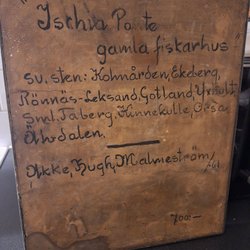 "Ischia Ponte
gamla fiskarhus"
sv. sten: Kolmården, Ekeberg,
Rönnäs-Leksand, Gotland, Yxhult
Sml. Taberg, Kinnekulle, Orsa,
Älvdalen.
Åkke, Hugh, Malmeström/
7000:-